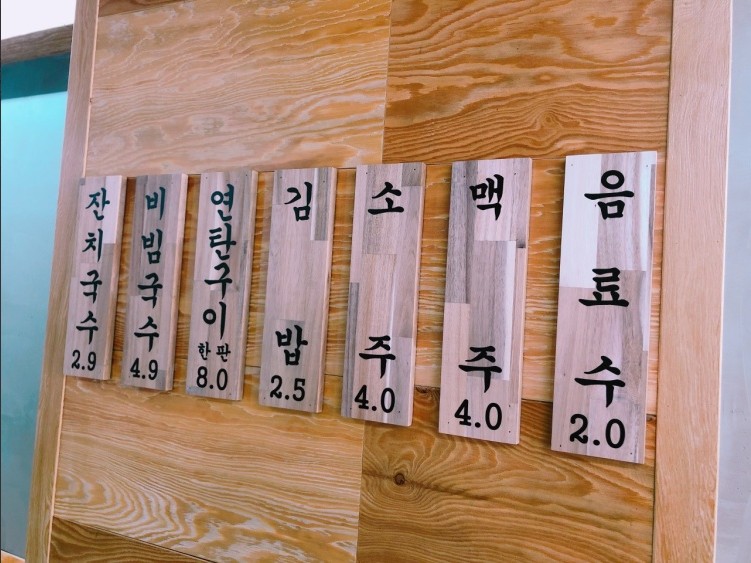 잔치국수
2.9
비빔국수
4.9
연탄구이
한판
8.0
김밥
2.5
소주
4.0
맥주
4.0
음료수
2.0